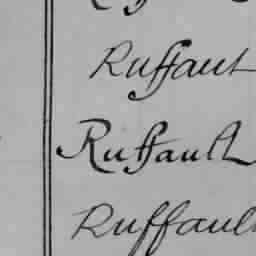 Ruffaut
Ruffault
Ruffault